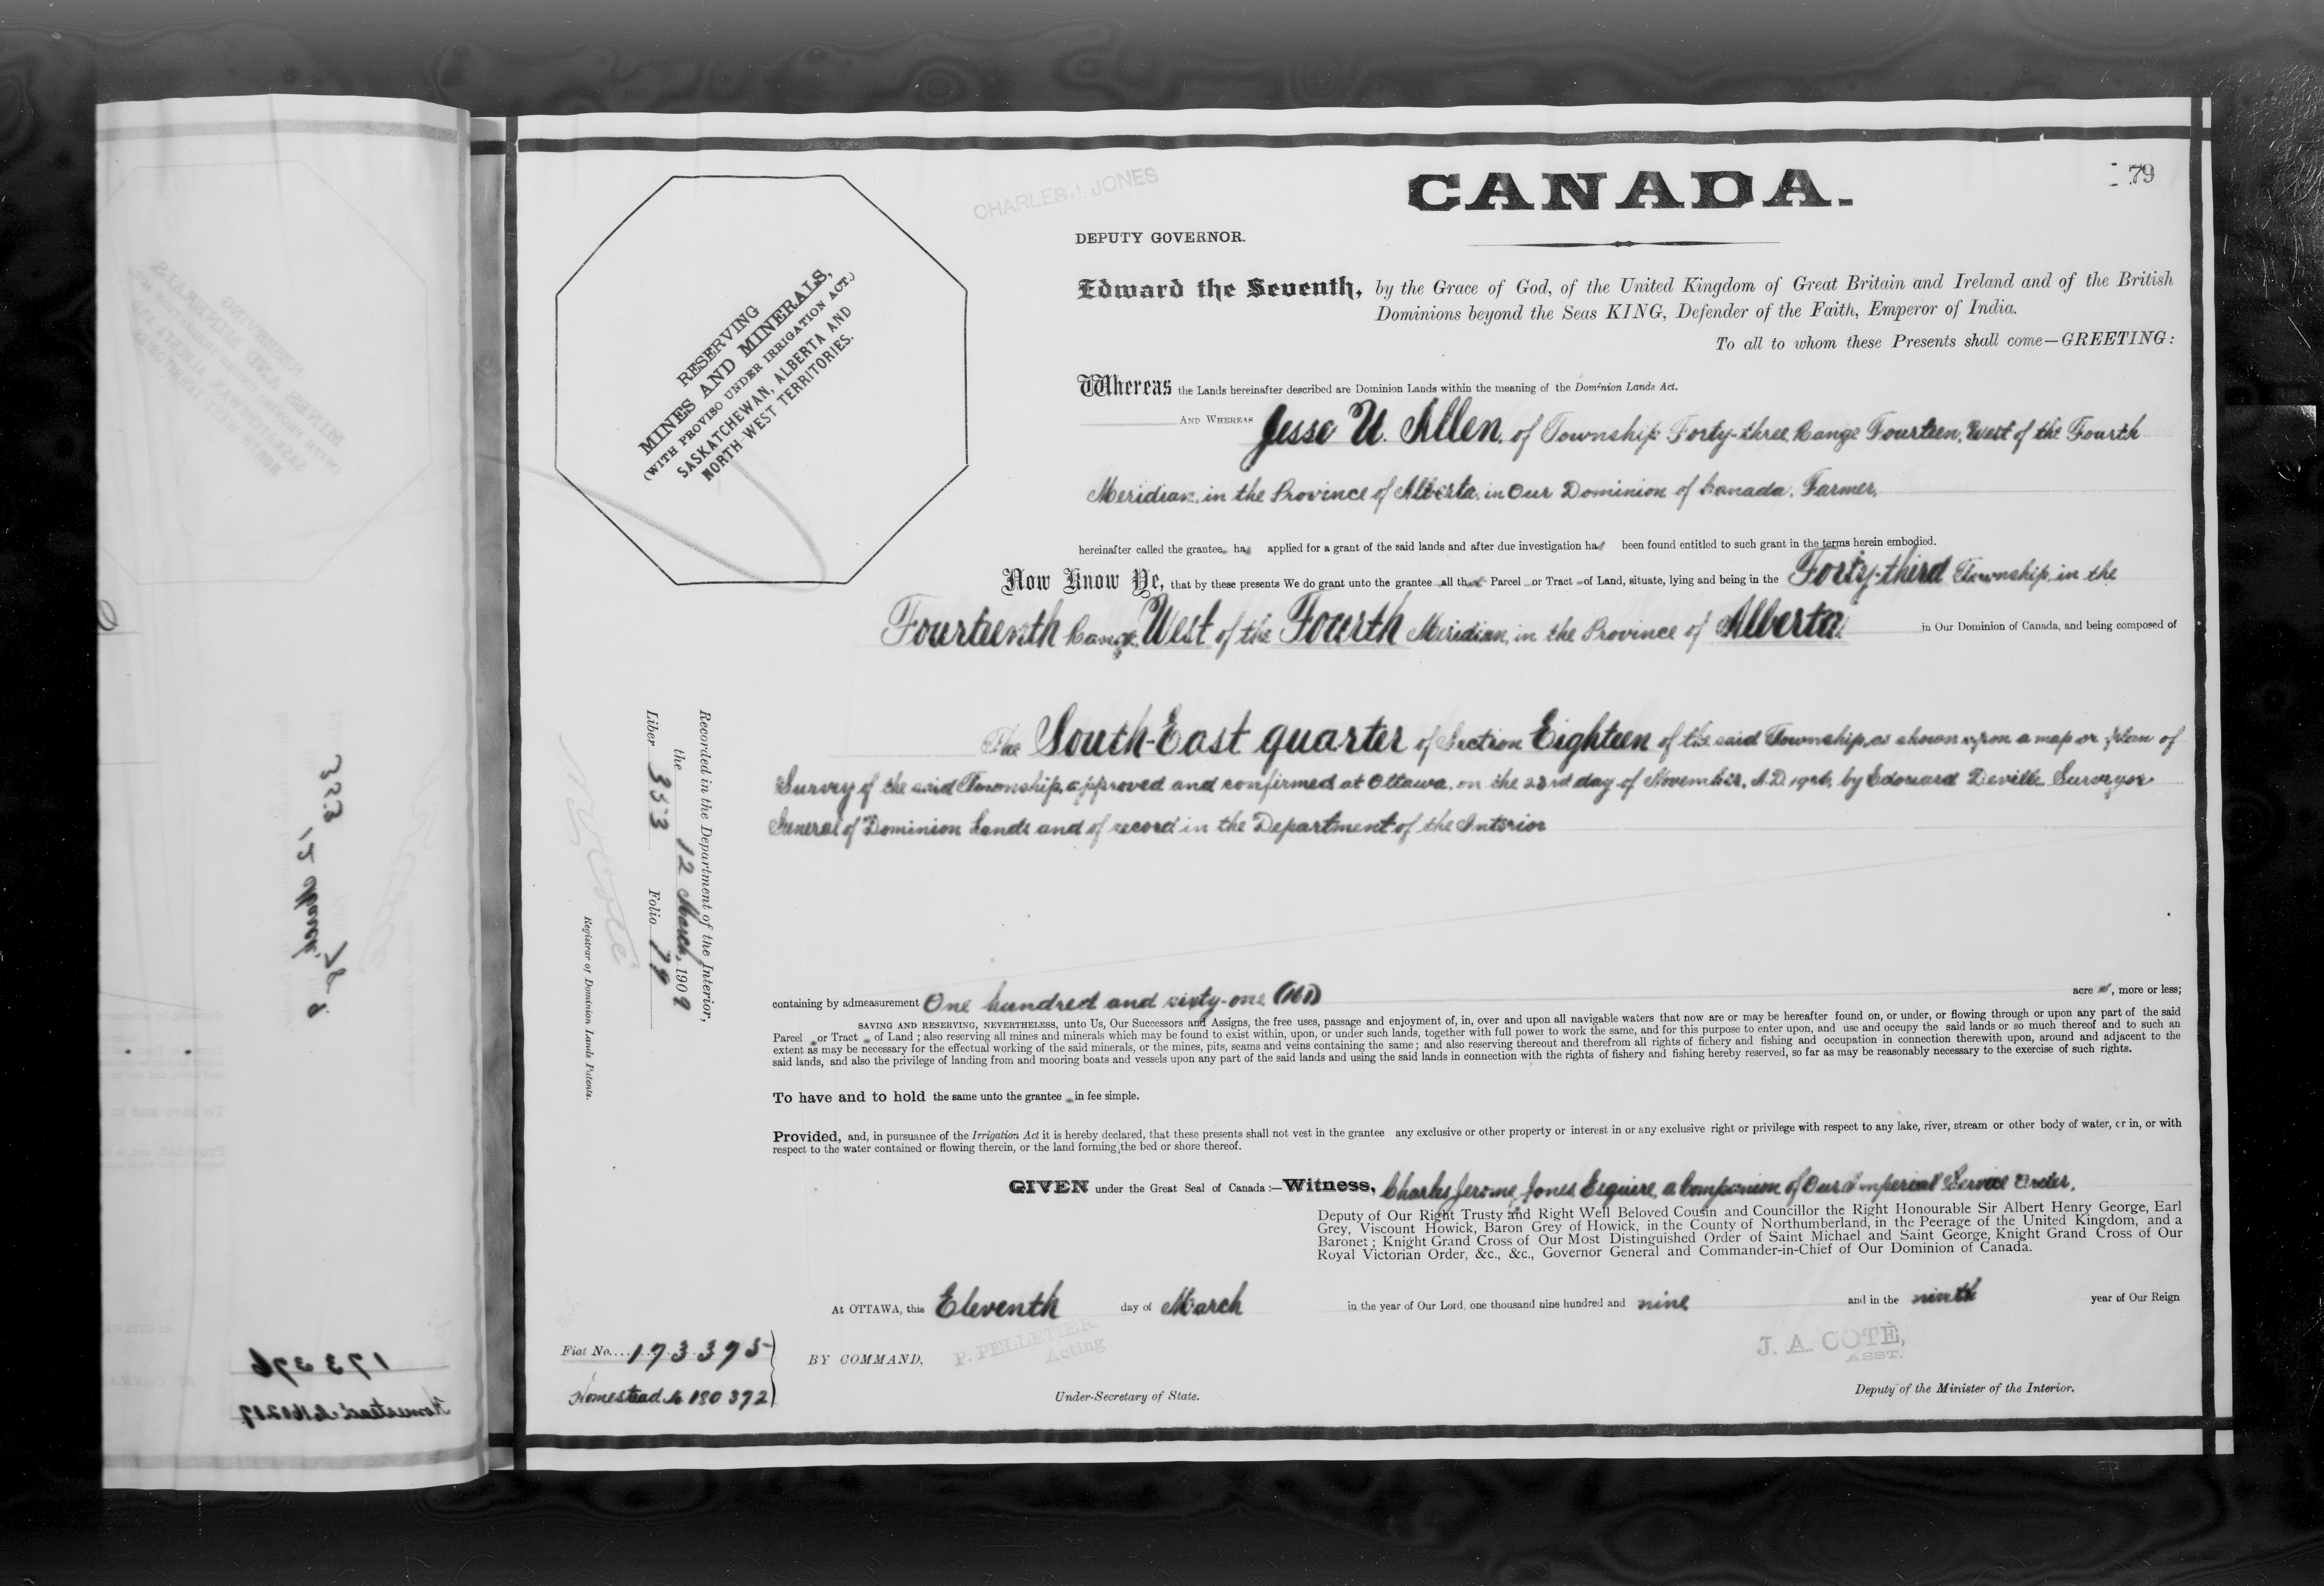 CANADA.
79
CHARLES J. JONES
DEPUTY GOVERNOR.
RESERVING
MINES AND MINERALS,
(WITH PROVISO UNDER IRRIGATION ACT.)
SASKATCHEWAN, ALBERTA AND
NORTH-WEST TERRITORIES.
Edward the Seventh, by the Grace of God, of the United Kingdom of Great Britain and Ireland and of the British
Dominions beyond the Seas KING, Defender of the Faith, Emperor of India.
To all to whom these Presents shall come—GREETING:
Whereas the Lands hereinafter described are Dominion Lands within the meaning of the Dominion Lands Act.
AND WHEREAS Jesse U. Allen, of Township Forty-three, Range Fourteen, West of the Fourth
Meridian, in the Province of Alberta, in Our Dominion of Canada, Farmer,
hereinafter called the grantee has applied for a grant of the said lands and after due investigation has been found entitled to such grant in the terms herein embodied.
Now Know Ye, that by these presents We do grant unto the grantee all that Parcel or Tract of Land, situate, lying and being in the Forty-third Township, in the
Fourteenth Range, West of the Fourth Meridian, in the Province of Alberta, in Our Dominion of Canada, and being composed of
The South-East quarter of Section Eighteen of the said Township, as shown upon a map or plan of
Survey of the said Township, approved and confirmed at Ottawa, on the 23rd day of November, A.D. by Edouard Deville Surveyor
General of Dominion Lands and of record in the Department of the Interior
containing by admeasurement One hundred and sixty-one (161) acres, more or less;
SAVING AND RESERVING, NEVERTHELESS, unto Us, Our Successors and Assigns, the free uses, passage and enjoyment of, in, over and upon all navigable waters that now are or may be hereafter found on, or under, or flowing through or upon any part of the said
Parcel or Tract of Land; also reserving all mines and minerals which may be found to exist within, upon, or under such lands, together with full power to work the same, and for this purpose to enter upon, and use and occupy the said lands or so much thereof and to such an
extent as may be necessary for the effectual working of the said minerals, or the mines, pits, seams and veins containing the same; and also reserving thereout and therefrom all rights of fichery and fishing and occupation in connection therewith upon, around and adjacent to the
said lands, and also the privilege of landing from and mooring boats and vessels upon any part of the said lands and using the said lands in connection with the rights of fishery and fishing hereby reserved, so far as may be reasonably necessary to the exercise of such rights.
To have and to hold the same unto the grantee in fee simple.
Provided, and, in pursuance of the Irrigation Act it is hereby declared, that these presents shall not vest in the grantee any exclusive or other property or interest in or any exclusive right or privilege with respect to any lake, river, stream or other body of water, or in, or with
respect to the water contained or flowing therein, or the land forming the bed or shore thereof.
GIVEN under the Great Seal of Canada:—Witness, Charles Jerome Jones, Esquire, a Companion of Our Imperial Service Order,
Deputy of Our Right Trusty and Right Well Beloved Cousin and Councillor the Right Honourable Sir Albert Henry George, Earl
Grey, Viscount Howick, Baron Grey of Howick, in the County of Northumberland, in the Peerage of the United Kingdom, and a
Baronet; Knight Grand Cross of Our Most Distinguished Order of Saint Michael and Saint George, Knight Grand Cross of Our
Royal Victorian Order, &c., &c., Governor General and Commander-in-Chief of Our Dominion of Canada.
At OTTAWA, this Eleventh day of March in the year of Our Lord, one thousand nine hundred and nine and in the ninth year of Our Reign
BY COMMAND,
P. PELLETIER,
Acting
Under-Secretary of State.
J. A. COTÉ,
ASST.
Deputy of the Minister of the Interior.
Fiat No. 173395
Homestead No 180372
Recorded in the Department of the Interior,
the 12 March, 1909
Liber 353 Folio 79
Registrar of Dominion Lands Patents.
173376